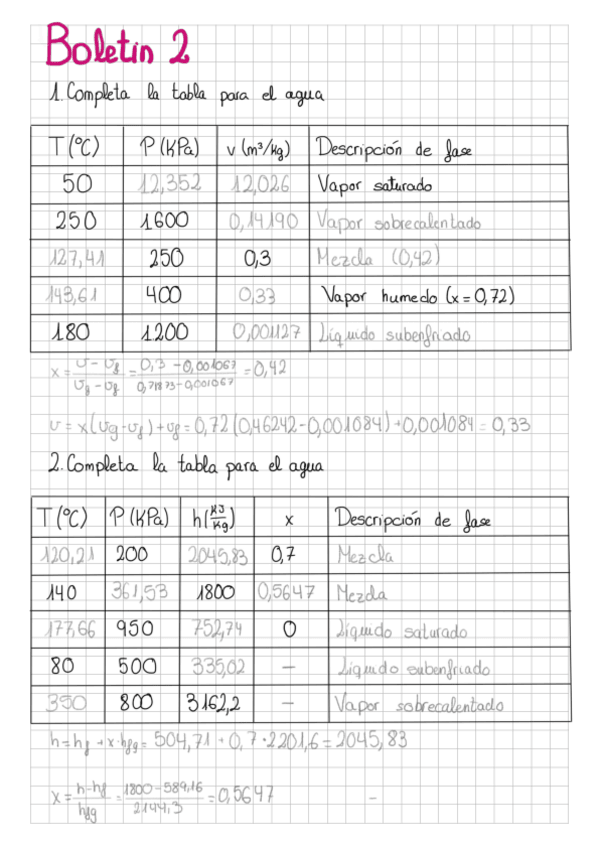 Boletin 2
1. Completa la tabla para el agua
T (°C) P (KPa) v (m³/Kg) Descripción de fase
50 12,352 12,026 Vapor saturado
250 1600 0,14190 Vapor sobrecalentado
127,41 250 0,3 Mezcla (0,42)
143,61 400 0,33 Vapor humedo (x = 0,72)
180 1200 0,001127 Líquido subenfriado
x = (v - vf)/(vg - vf) = (0,3 - 0,001067)/(0,71873 - 0,001067) = 0,42
v = x(vg - vf) + vf = 0,72 (0,46242 - 0,001084) + 0,001084 = 0,33
2. Completa la tabla para el agua
T (°C) P (KPa) h (KJ/Kg) x Descripción de fase
120,21 200 2045,83 0,7 Mezcla
140 361,53 1800 0,5647 Mezcla
177,66 950 752,74 0 Líquido saturado
80 500 335,02 - Líquido subenfriado
350 800 3162,2 - Vapor sobrecalentado
h = hf + x·hfg = 504,71 + 0,7·2201,6 = 2045,83
x = (h - hf)/hfg = (1800 - 589,16)/2144,3 = 0,5647